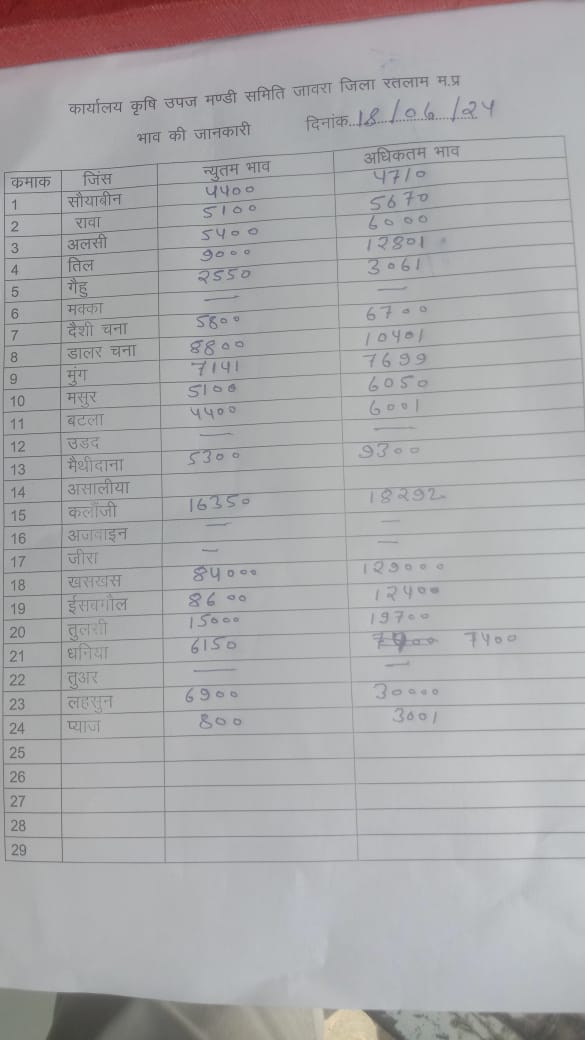 कार्यालय कृषि उपज मण्डी समिति जावरा जिला रतलाम म.प्र
भाव की जानकारी दिनांक..18/06/24
कमाक जिंस न्युतम भाव अधिकतम भाव
1 सौयाबीन 4400 4710
2 रावा 5100 5670
3 अलसी 5400 6000
4 तिल 9000 12801
5 गैहु 2550 3061
6 मक्का — —
7 दैशी चना 5800 6700
8 डालर चना 8800 10401
9 मुंग 7141 7699
10 मसुर 5100 6050
11 बटला 4400 6001
12 उडद — —
13 मैथीदाना 5300 9300
14 असालीया
15 कलौंजी 16350 18292
16 अजवाइन — —
17 जीरा — —
18 खसखस 84000 129000
19 ईसबगौल 8600 12400
20 तुलसी 15000 19700
21 धनिया 6150 7400
22 तुअर — —
23 लहसुन 6900 30000
24 प्याज 800 3001
25
26
27
28
29